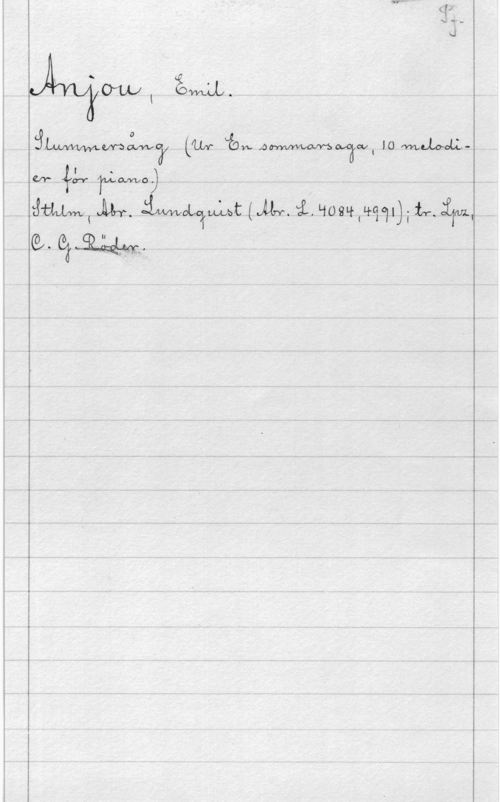 Pf.
Anjou, Emil.
Slummersång (Ur En sommarsaga, 10 melodi-
er för piano.)
Sthlm, Abr. Lundquist (Abr. L. 4084, 4991); tr. Lpz,
C. G. Röder.